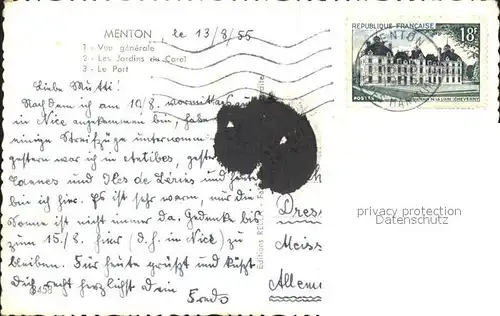 MENTON le 13/8/55
1 - Vue générale
2 - Les Jardins du Carei
3 - Le Port
RÉPUBLIQUE FRANÇAISE 18F
POSTES
MENTON
Liebe Mutti!
Nachdem ich am 10/8. vormittags
in Nice angekommen bin, habe
einige Streifzüge unternomm
gestern war ich in Antibes, gest
Cannes und Iles de Lérins und
bin ich hier. Es ist sehr warm, nur die
Sonne ist nicht immer da. Gedenke bis
zum 15./8. hier (d.h. in Nice) zu
bleiben. Für heute grüßt und küßt
Dich recht herzlichst Dein
Fredo
Editions RE
Dres
Meiss
Allem
privacy protection
Datenschutz